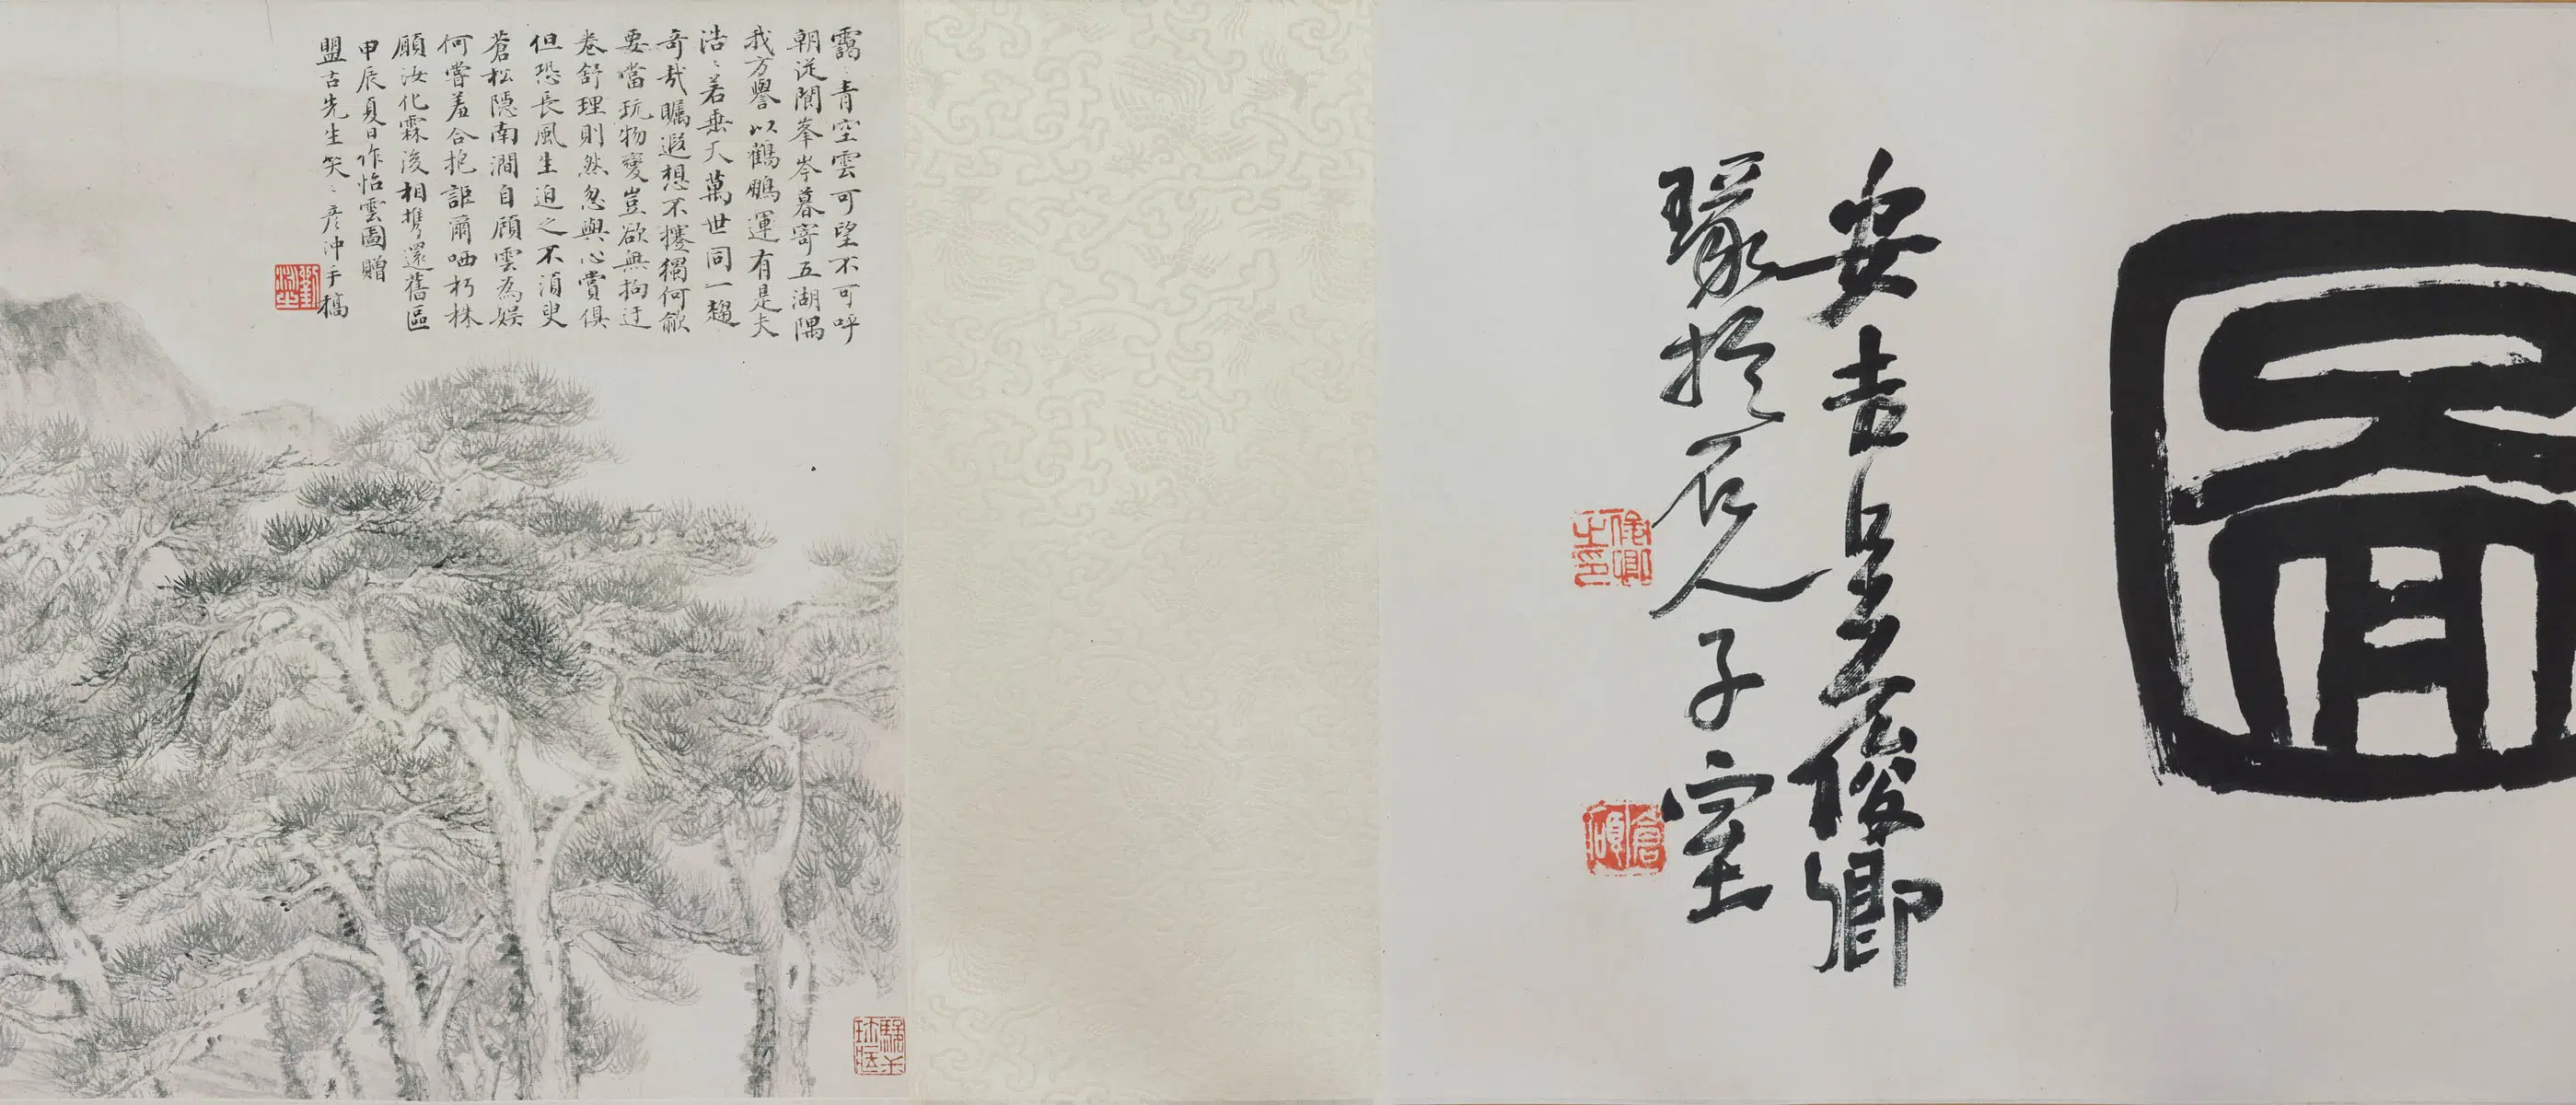 圖
安吉吳俊卿
篆於石人子室
俊卿之印
倉碩
靄ミ青空雲可望不可呼
朝從閬峯岑暮寄五湖隅
我方譽以鶴鵬運有是夫
浩ミ若垂天萬世同一趨
奇哉矚遐想不攓獨何歈
要當玩物變豈欲無拘迂
卷舒理則然忽與心賞俱
但恐長風生迫之不須臾
蒼松隱南澗自顧雲為娱
何嘗羞合抱詎爾哂朽株
願汝化霖後相攜還舊區
甲辰夏日作怡雲圖贈
盟古先生笑ミ彦沖手稿